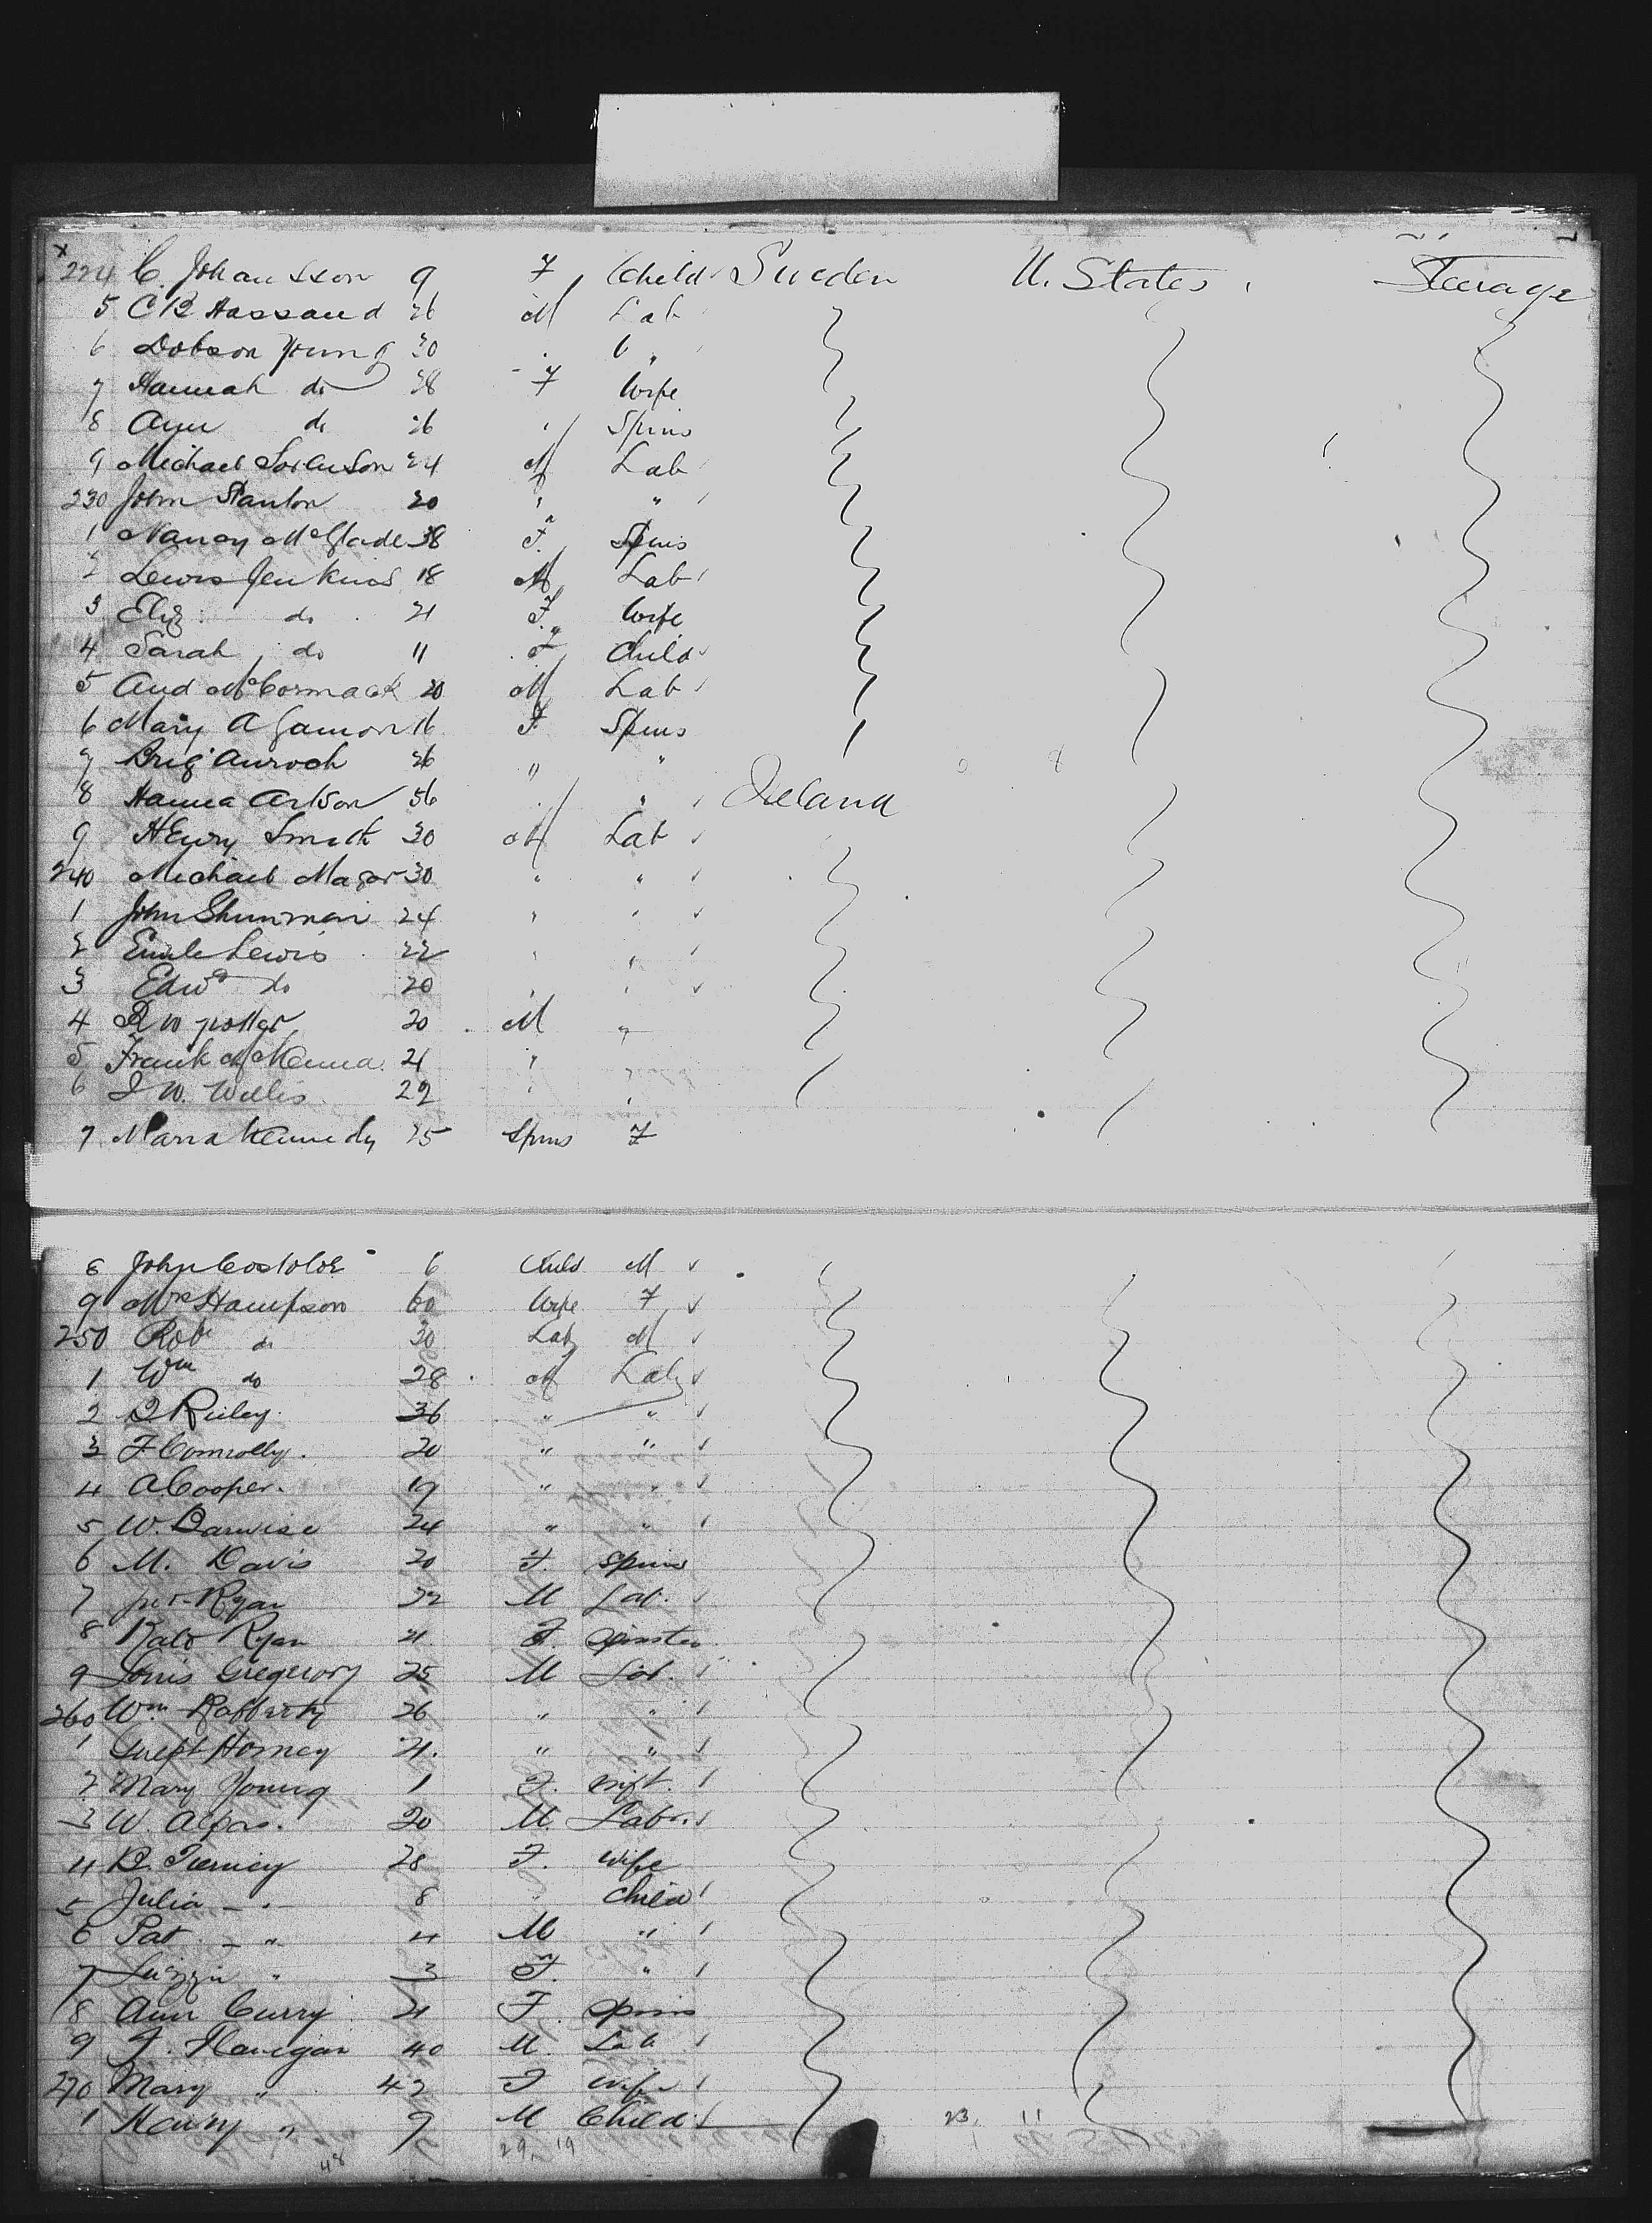 224 C. Johansson 9 F Child Sweden U. States Steerage
5 C B Hassand 26 M Lab
6 Dobson Young 30 " "
7 Hannah do 38 F Wife
8 Ann do 26 " Spins
9 Michael Sorenson 24 M Lab
230 John Stanton 20 " "
1 Nancy McGlade 38 F. Spins
2 Lewis Jenkins 18 M Lab
3 Eliz: do 21 F. Wife
4 Sarah do 11 F Child
5 And McCormack 20 M Lab
6 Mary A Gamon 16 F Spins
7 Brig 26 " "
8 Hanna Arlson 56 " " Ireland
9 Henry Smith 30 M Lab
240 Michael Magor 30 " "
1 John Shunman 24 " "
2 Emile Lewis 22 " "
3 Edwd do 20 " "
4 R W potter 20 M "
5 Frank McKenna 21 " "
6 J W. Willis 22 " "
7 Maria Kennedy 25 Spins F
8 John Costoloe 6 Child M
9 Mrs Hampson 60 Wife F
250 Robt do 30 Lab M
1 Wm do 28 M Lab
2 Riley 36 " "
3 F Connolly. 20 " "
4 A Cooper. 19 " "
5 W. Darwise 24 " "
6 M. Davis 20 F. Spins
7 Ryan 22 M Lab.
8 Kate Ryan 21 F. Spinster
9 Louis Gregeory 25 M Lab.
260 Wm Rafferty 26 " "
1 Horney 21. " "
2 Mary Young 1 F. Inft.
3 W. 20 M. Labr.
4 B. Tierney 28 F. Wife
5 Julia - " 8 " Child
6 Pat - " 4 M "
7 Lizzie " 3 F. "
8 Ann Curry 21 F Spins
9 J. Flanigan 40 M. Lab
270 Mary " 42 F Wife
1 Henry " 9 M Child
23 11
29 19
48